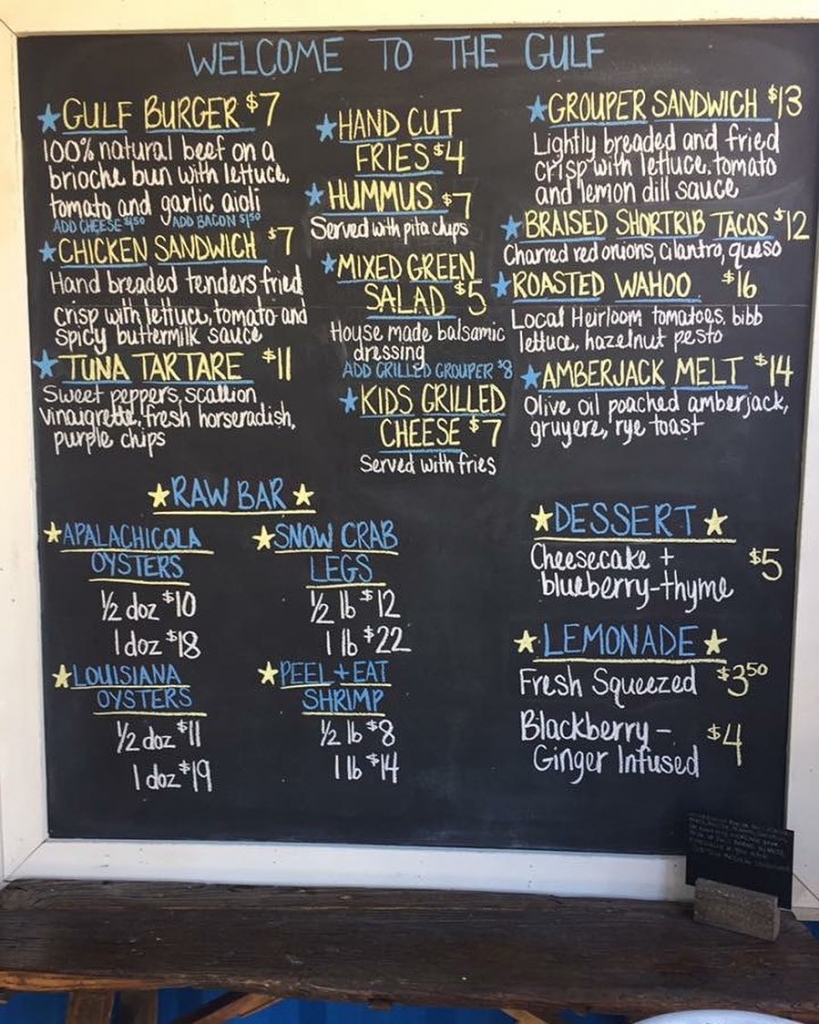 WELCOME TO THE GULF
GULF BURGER $7
100% natural beef on a
brioche bun with lettuce,
tomato and garlic aioli
ADD CHEESE $1.50 ADD BACON $1.50
CHICKEN SANDWICH $7
Hand breaded tenders fried
crisp with lettuce, tomato and
spicy buttermilk sauce
TUNA TARTARE $11
Sweet peppers, scallion
vinaigrette, fresh horseradish,
purple chips
HAND CUT
FRIES $4
HUMMUS $7
Served with pita chips
MIXED GREEN
SALAD $5
House made balsamic
dressing
ADD GRILLED GROUPER $8
KIDS GRILLED
CHEESE $7
Served with fries
GROUPER SANDWICH $13
Lightly breaded and fried
crisp with lettuce, tomato
and lemon dill sauce
BRAISED SHORTRIB TACOS $12
Charred red onions, cilantro, queso
ROASTED WAHOO $16
Local Heirloom tomatoes, bibb
lettuce, hazelnut pesto
AMBERJACK MELT $14
Olive oil poached amberjack,
gruyere, rye toast
RAW BAR
APALACHICOLA
OYSTERS
1/2 doz $10
1 doz $18
LOUISIANA
OYSTERS
1/2 doz $11
1 doz $19
SNOW CRAB
LEGS
1/2 lb $12
1 lb $22
PEEL + EAT
SHRIMP
1/2 lb $8
1 lb $14
DESSERT
Cheesecake + $5
blueberry-thyme
LEMONADE
Fresh Squeezed $3.50
Blackberry- $4
Ginger Infused